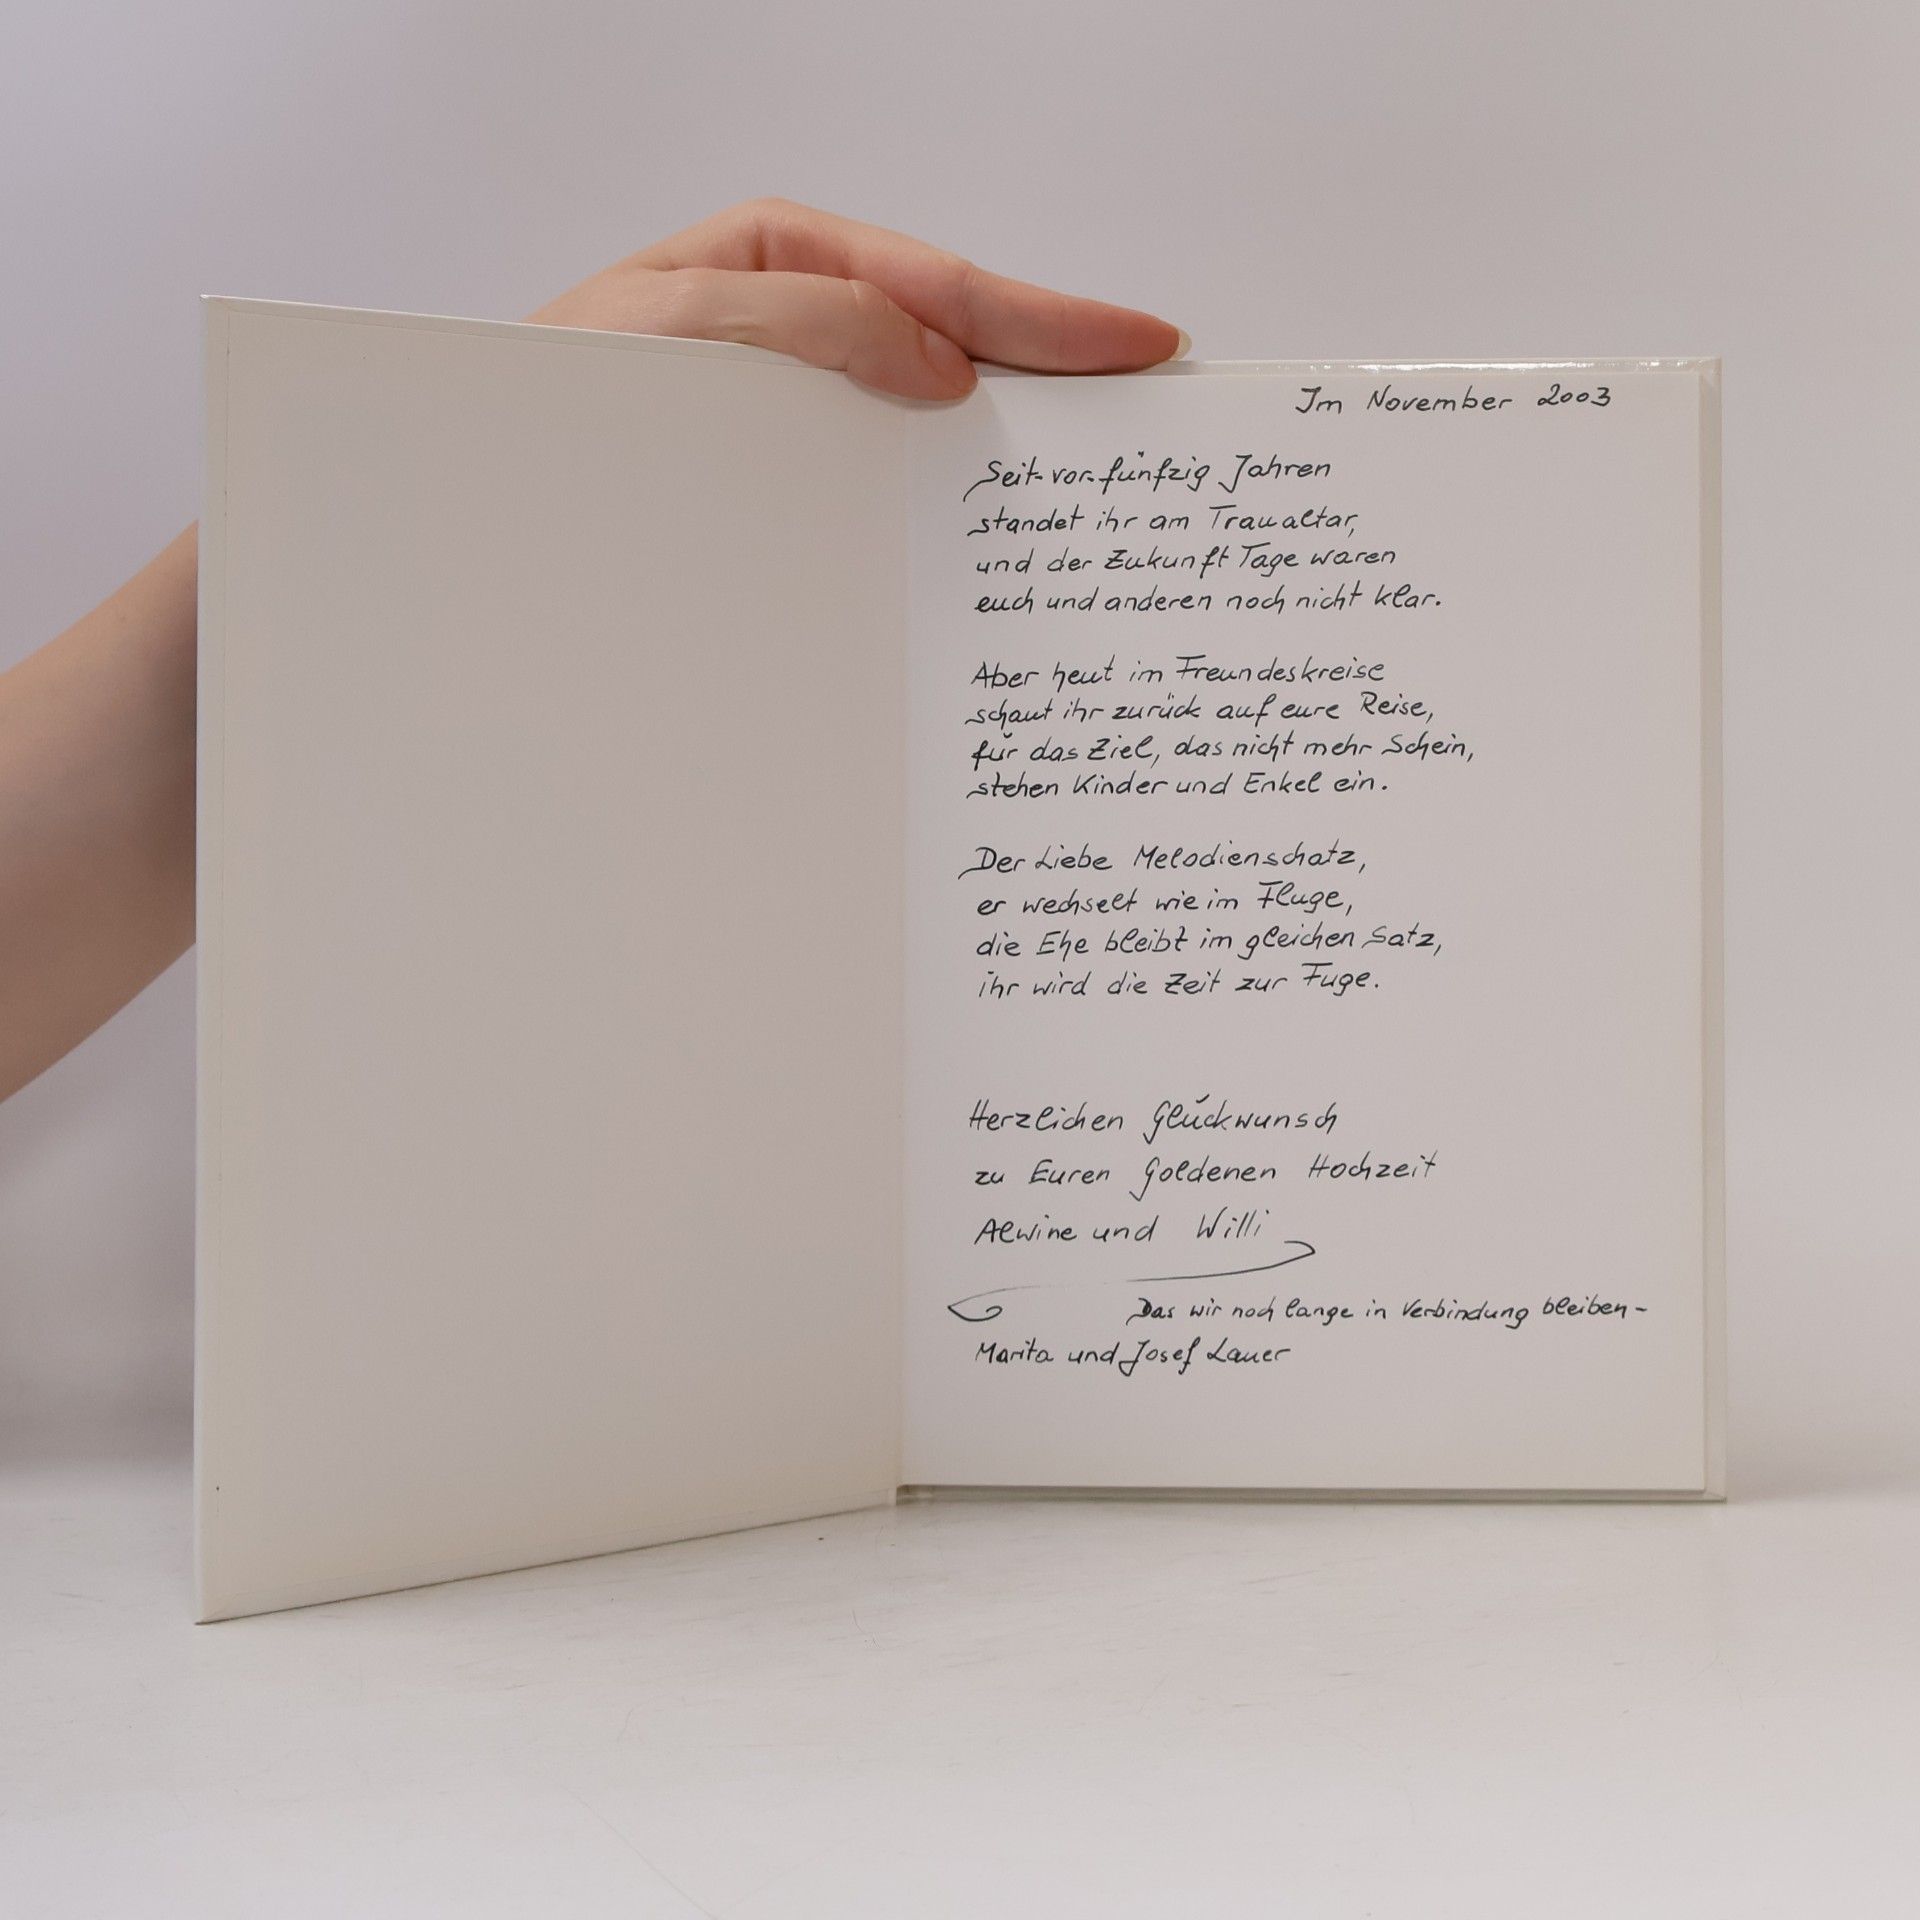 Im November 2003
Seit-vor-fünfzig Jahren
standet ihr am Traualtar,
und der Zukunft Tage waren
euch und anderen noch nicht klar.
Aber heut im Freundeskreise
schaut ihr zurück auf eure Reise,
für das Ziel, das nicht mehr Schein,
stehen Kinder und Enkel ein.
Der Liebe Melodienschatz,
er wechselt wie im Fluge,
die Ehe bleibt im gleichen Satz,
ihr wird die Zeit zur Fuge.
Herzlichen Glückwunsch
zu Euren Goldenen Hochzeit
Alwine und Willi
Das wir noch lange in Verbindung bleiben-
Marita und Josef Lauer